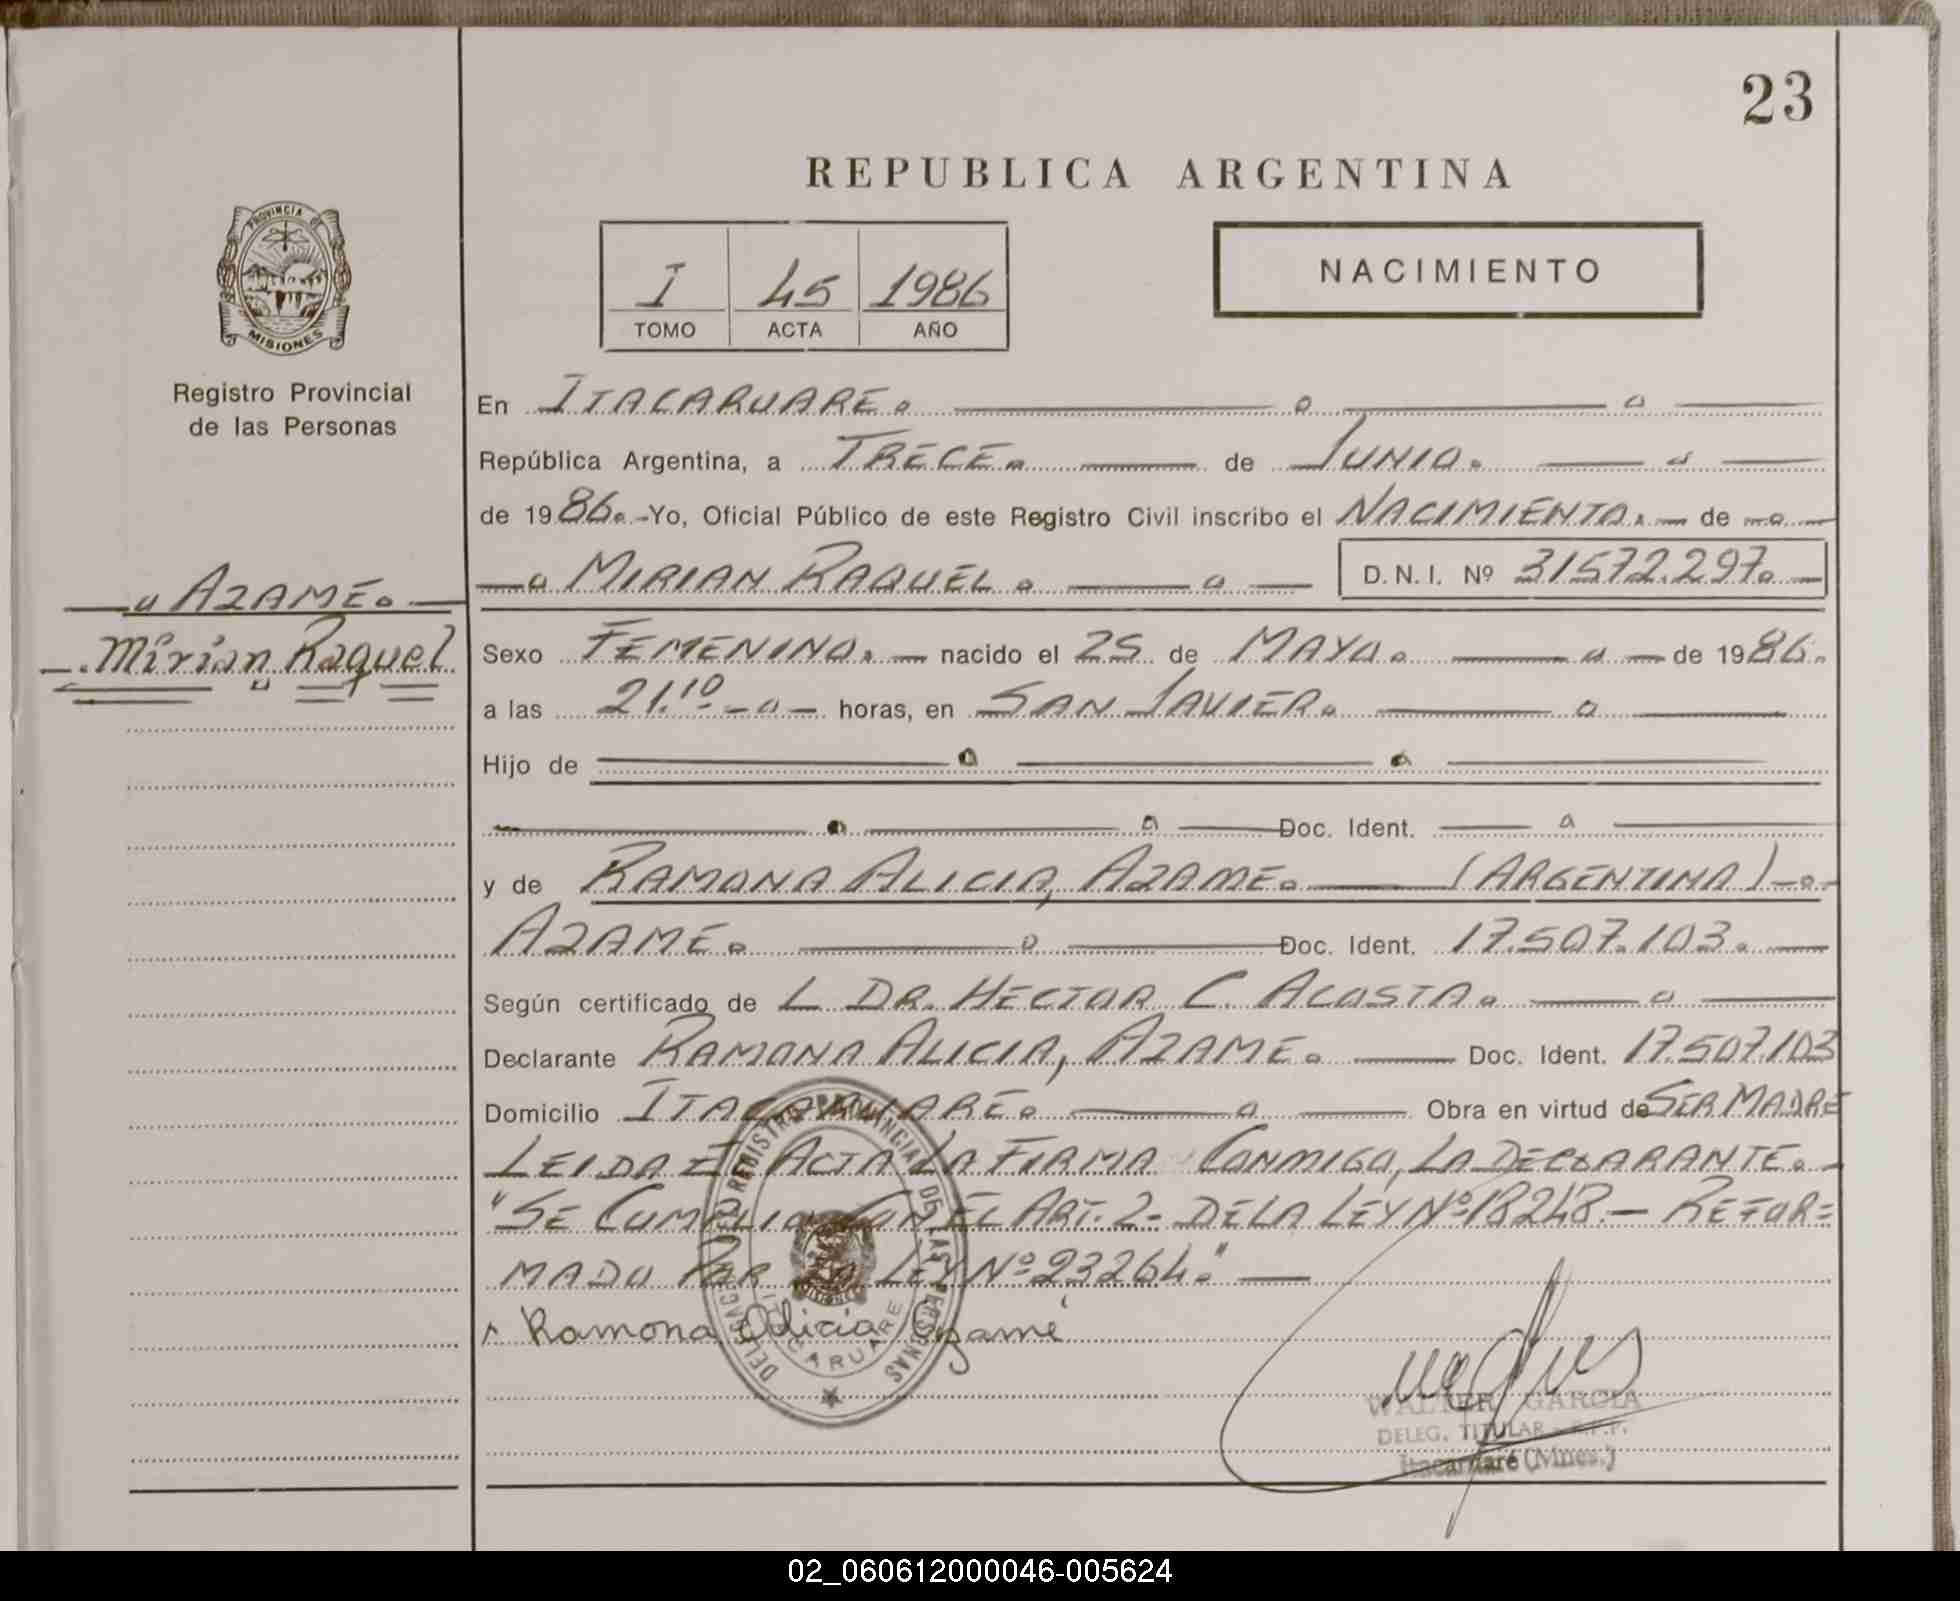 23
REPUBLICA ARGENTINA
PROVINCIA DE
MISIONES
Registro Provincial
de las Personas
I 45 1986
TOMO ACTA AÑO
NACIMIENTO
En ITACARUARE.
República Argentina, a TRECE. de JUNIO.
de 1986.-Yo, Oficial Público de este Registro Civil inscribo el NACIMIENTO. de
MIRIAN RAQUEL. D.N.I. Nº 31.572.297.
AZAME.
Mirian Raquel
Sexo FEMENINO. nacido el 25 de MAYO. de 1986.
a las 21.10 horas, en SAN JAVIER.
Hijo de
Doc. Ident.
y de RAMONA ALICIA, AZAME. (ARGENTINA)
AZAME. Doc. Ident. 17.507.103.
Según certificado de L DR. HECTOR C. ACOSTA.
Declarante RAMONA ALICIA, AZAME. Doc. Ident. 17.507.103
Domicilio ITACARUARE. Obra en virtud de SER MADRE
LEIDA EL ACTA LA FIRMA CONMIGO, LA DECLARANTE.
"SE CUMPLIO CON EL ART. 2- DE LA LEY Nº 18248.- REFOR=
MADO POR LA LEY Nº 23264."
Ramona Alicia Azamé
DELEGACION DEL REGISTRO PROVINCIAL DE LAS PERSONAS
ITACARUARE
WALTER GARCIA
DELEG. TITULAR - R.P.P.
Itacaruaré (Mnes.)
02_060612000046-005624